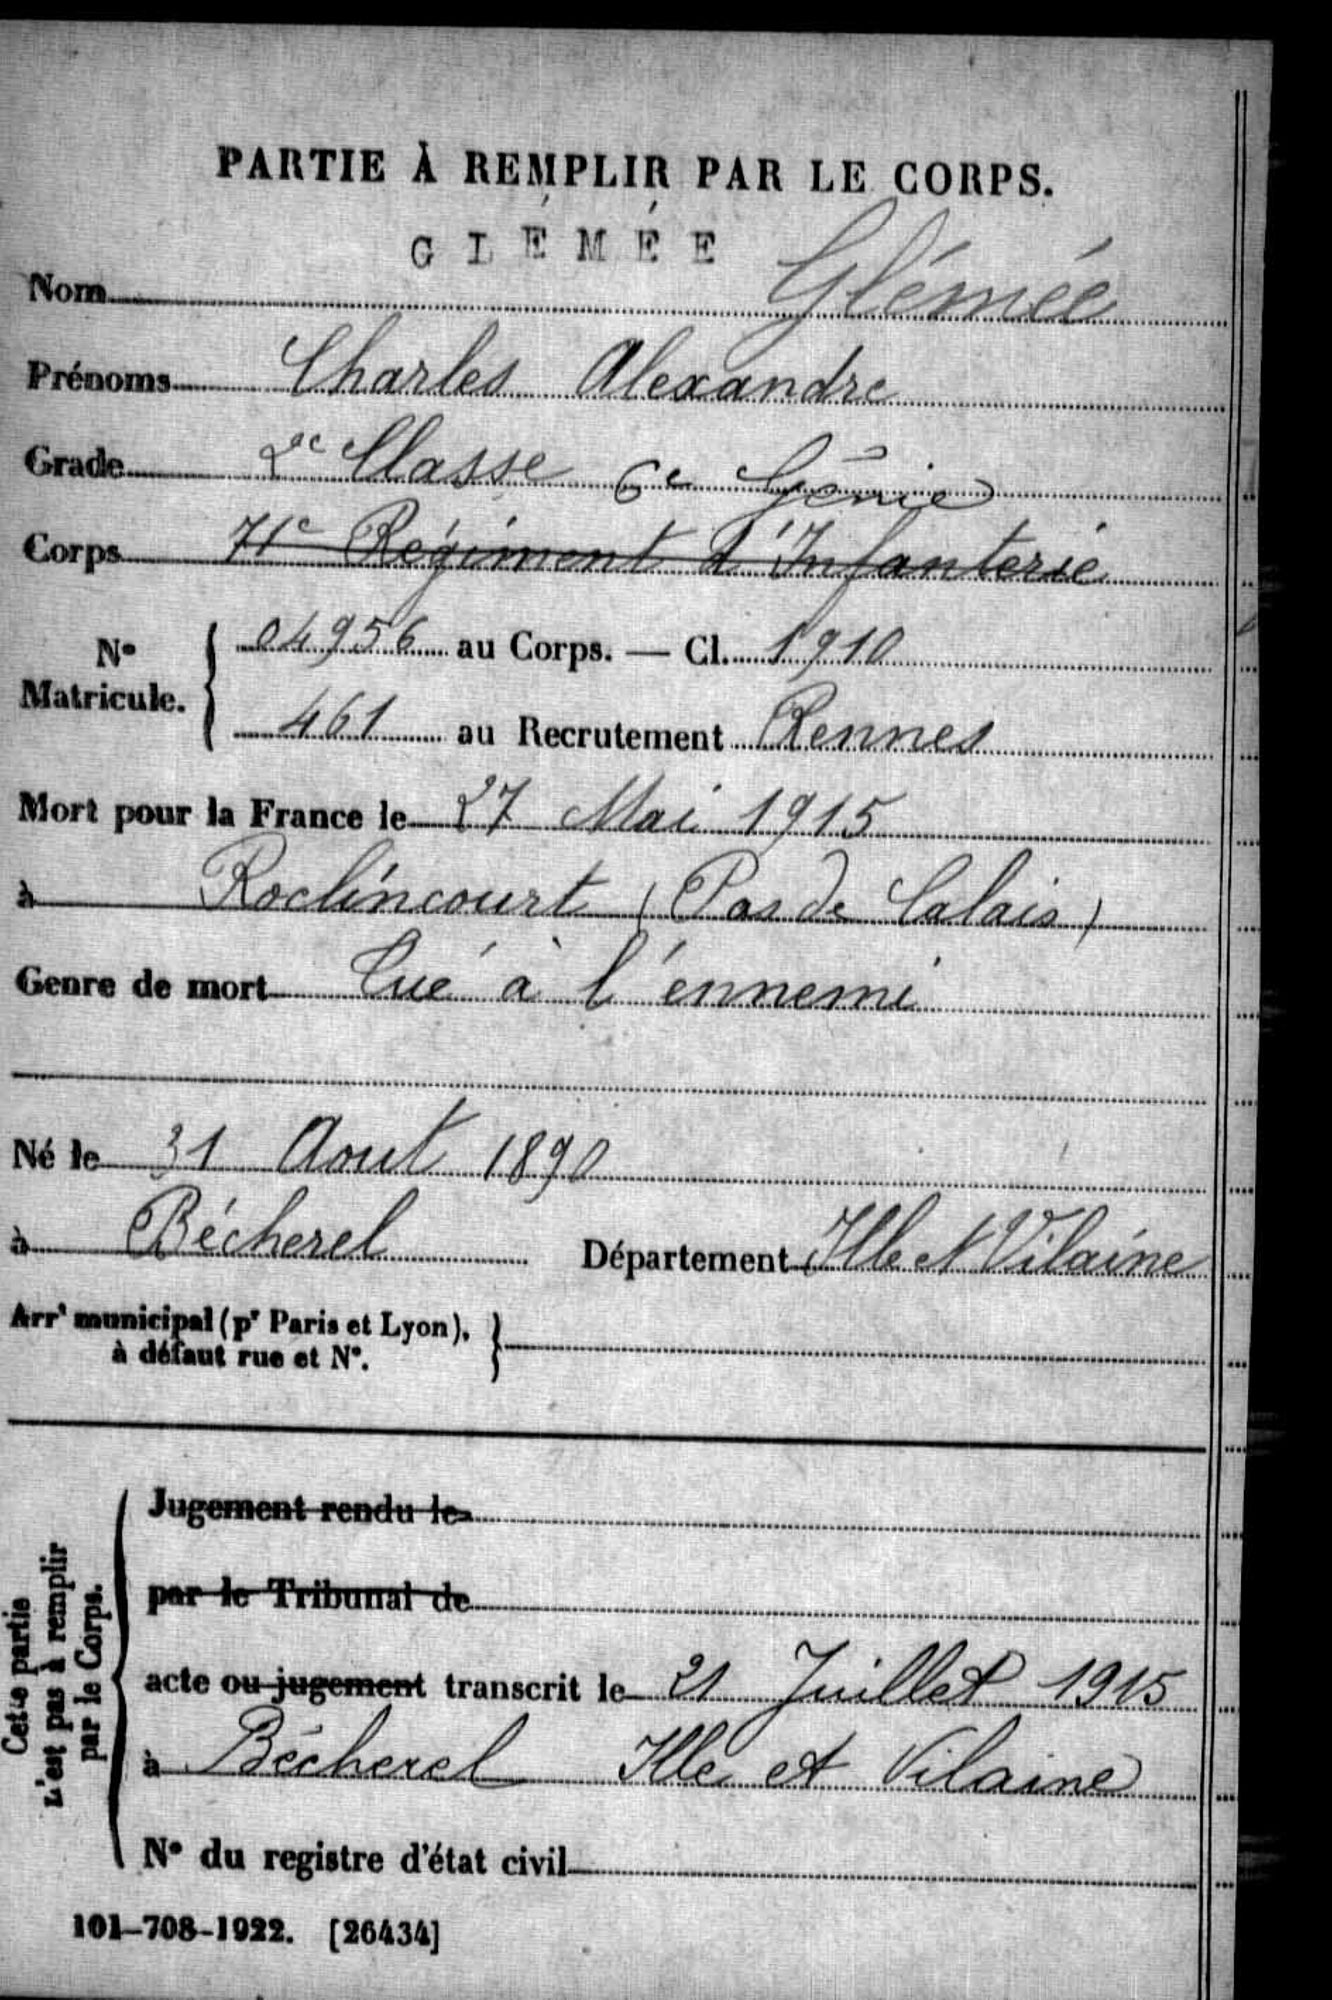 PARTIE À REMPLIR PAR LE CORPS.
GLÉMÉE
Nom Glémée
Prénoms Charles Alexandre
Grade 2e Classe 6e Génie
Corps 71e Régiment d'Infanterie
N° Matricule. 04956 au Corps. — Cl. 1910
461 au Recrutement Rennes
Mort pour la France le 27 Mai 1915
à Roclincourt (Pas de Calais)
Genre de mort Tué à l'ennemi
Né le 31 Aout 1890
à Bécherel Département Ille et Vilaine
Arrt municipal (pr Paris et Lyon),
à défaut rue et N°.
Cette partie
n'est pas à remplir
par le Corps.
Jugement rendu le
par le Tribunal de
acte ou jugement transcrit le 21 Juillet 1915
à Bécherel Ille et Vilaine
N° du registre d'état civil
101-708-1922. [26434]